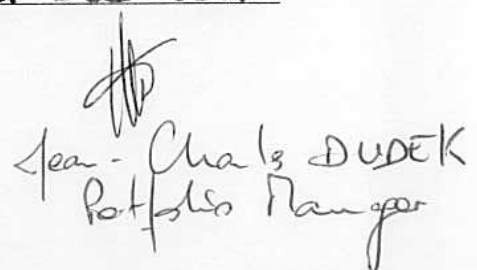 Jean-Charles DUDEK
Portfolio Manager